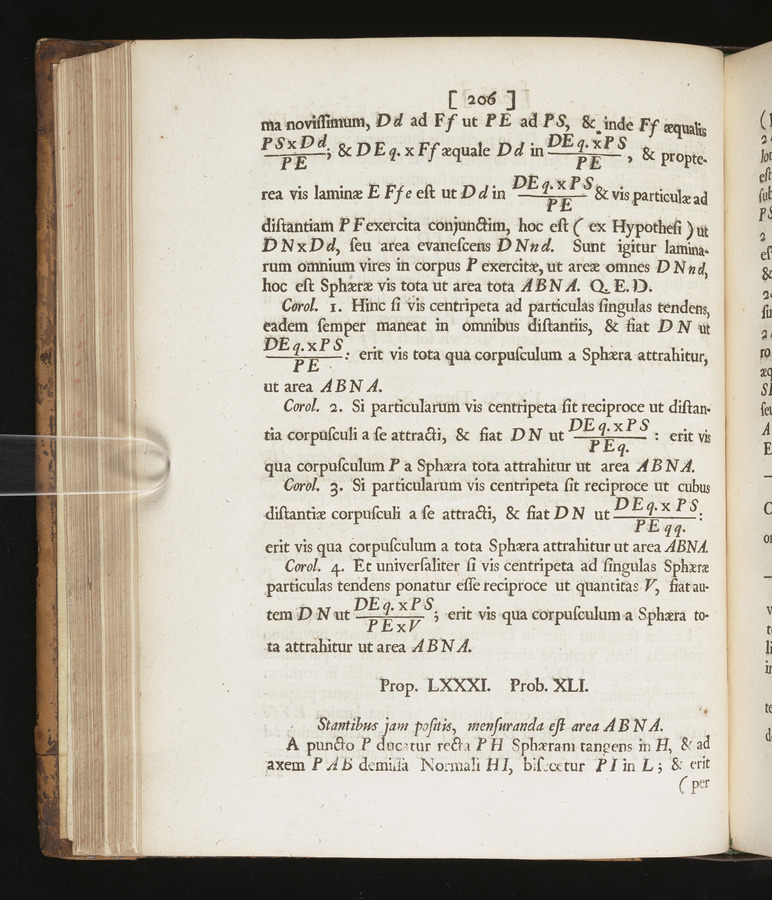 [ 206 ]
ma novissimum, Dd ad Ff ut PE ad PS, & inde Ff æqualis
PS x Dd / PE ; & DE q. x Ff æquale Dd in DE q. x PS / PE , & propte-
rea vis laminæ E F f e est ut D d in DE q. x PS / PE & vis particulæ ad
distantiam P F exercita conjunctim, hoc est ( ex Hypothesi ) ut
D N x D d, seu area evanescens D N n d. Sunt igitur lamina-
rum omnium vires in corpus P exercitæ, ut areæ omnes D N n d,
hoc est Sphæræ vis tota ut area tota A B N A. Q. E. D.
Corol. 1. Hinc si vis centripeta ad particulas singulas tendens,
eadem semper maneat in omnibus distantiis, & fiat D N ut
DE q. x PS / PE : erit vis tota qua corpusculum a Sphæra attrahitur,
ut area A B N A.
Corol. 2. Si particularum vis centripeta sit reciproce ut distan-
tia corpusculi a se attracti, & fiat D N ut DE q. x PS / PE q. : erit vis
qua corpusculum P a Sphæra tota attrahitur ut area A B N A.
Corol. 3. Si particularum vis centripeta sit reciproce ut cubus
distantiæ corpusculi a se attracti, & fiat D N ut DE q. x PS / PE qq. :
erit vis qua corpusculum a tota Sphæra attrahitur ut area ABNA.
Corol. 4. Et universaliter si vis centripeta ad singulas Sphæræ
particulas tendens ponatur esse reciproce ut quantitas V, fiat au-
tem D N ut DE q. x PS / PE x V ; erit vis qua corpusculum a Sphæra to-
ta attrahitur ut area A B N A.
Prop. LXXXI. Prob. XLI.
Stantibus jam positis, mensuranda est area A B N A.
A puncto P ducatur recta P H Sphæram tangens in H, & ad
axem P A B demissa Normali H I, bisecetur P I in L ; & erit
( per